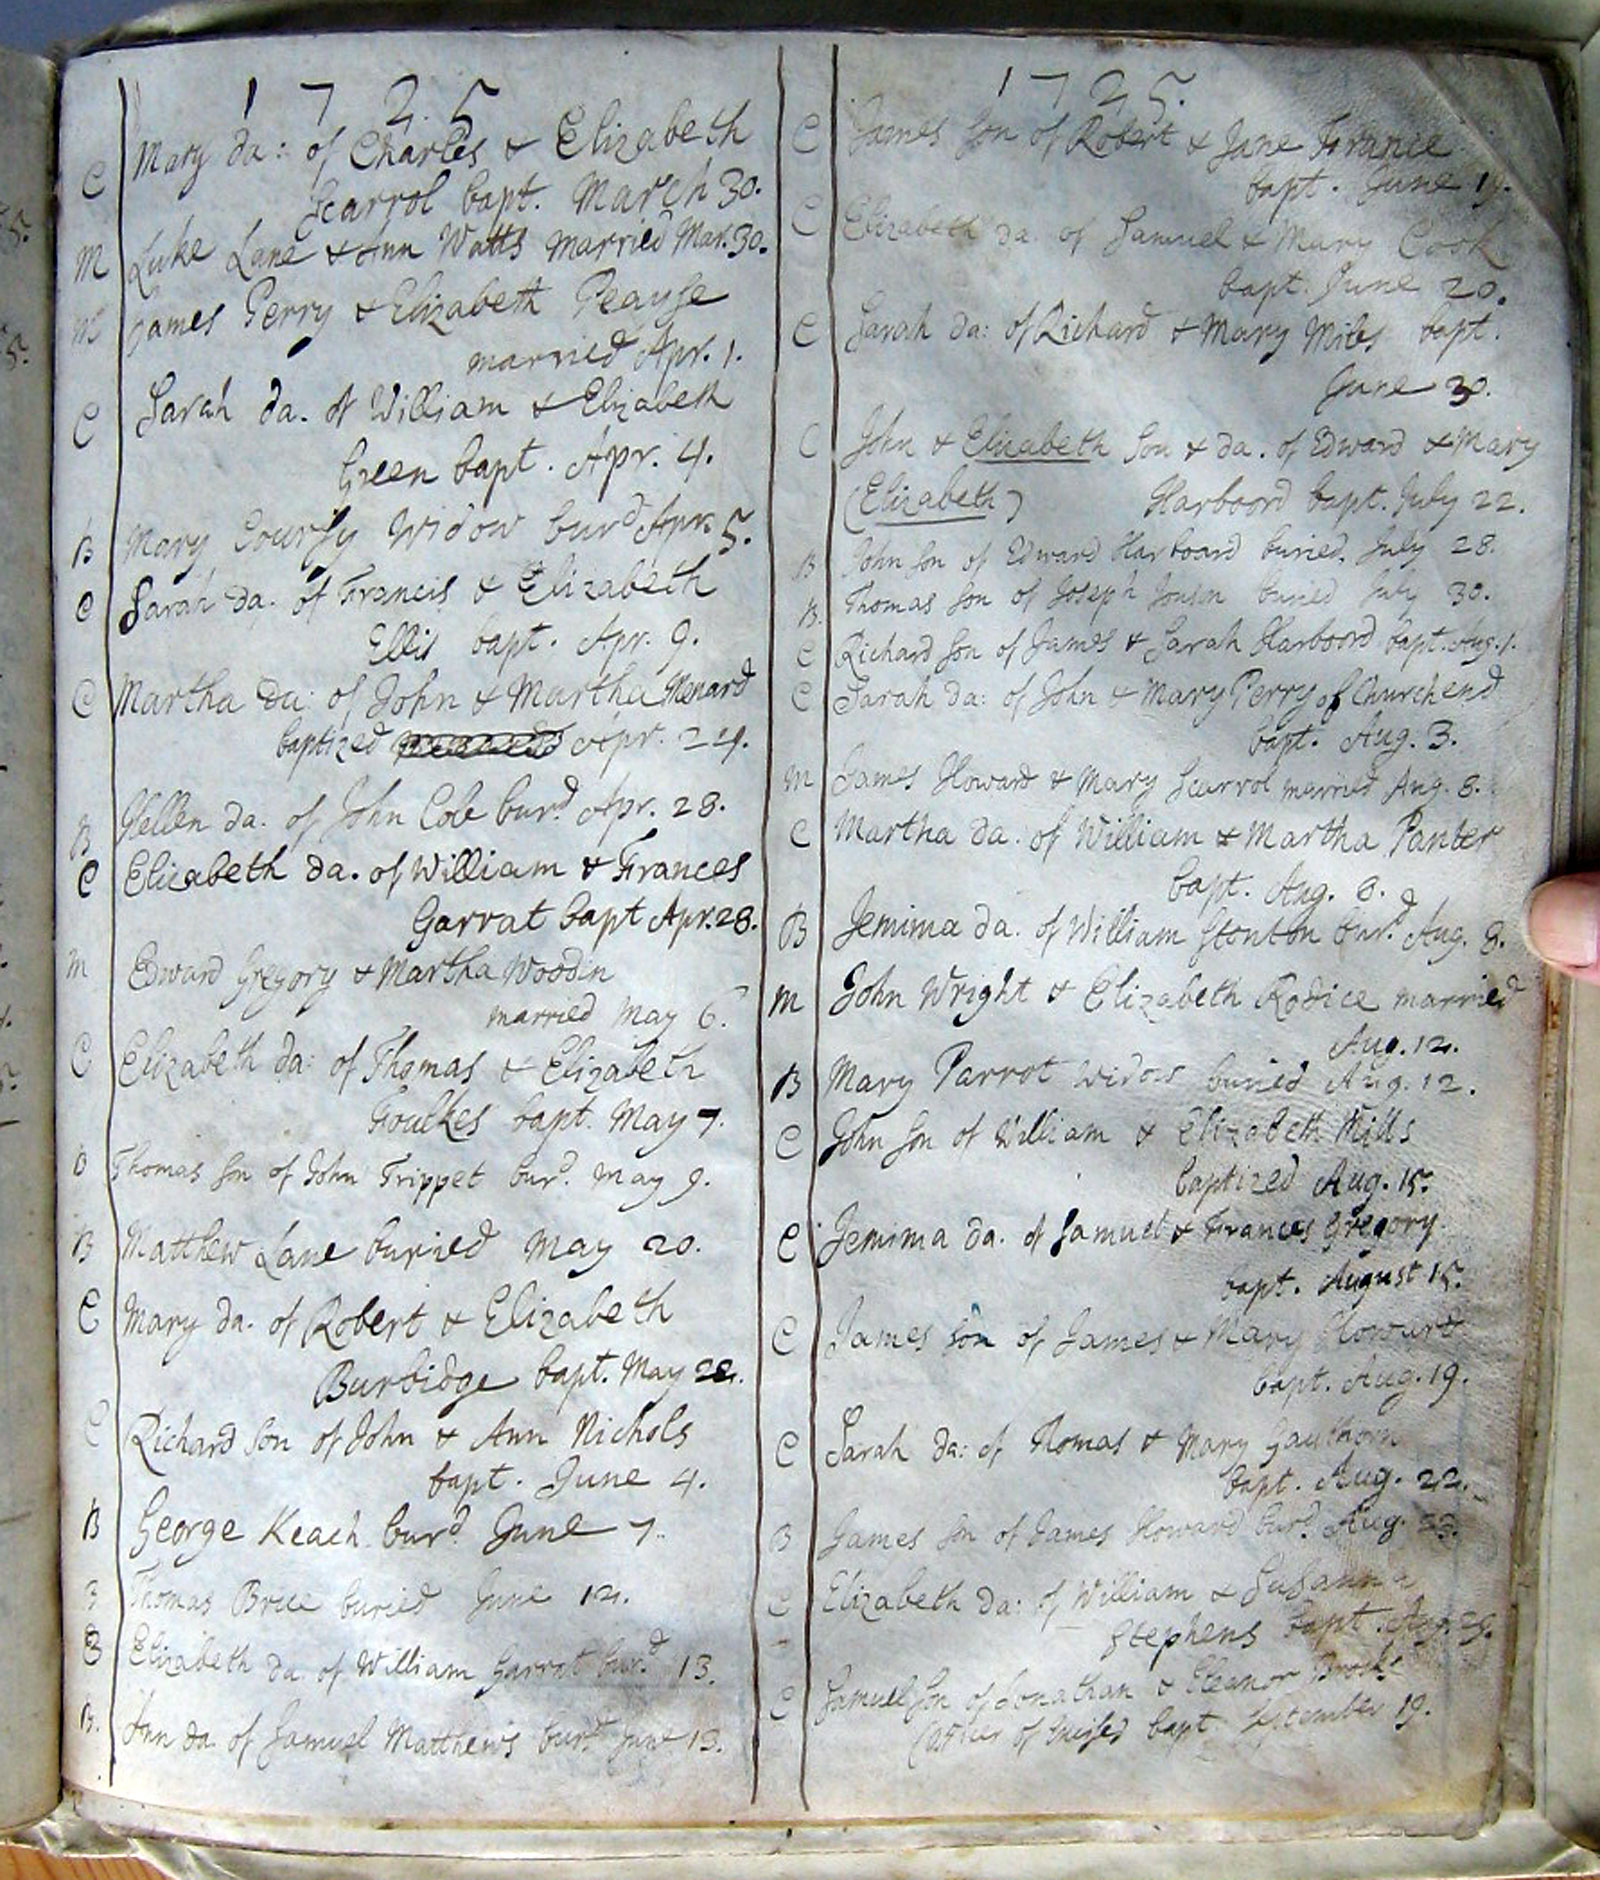 1725
C Mary da: of Charles & Elizabeth
Scarrol bapt. March 30.
M Luke Lane & Ann Watts married Mar. 30.
M James Perry & Elizabeth Peayse
married Apr. 1.
C Sarah da. of William & Elizabeth
Green bapt. Apr. 4.
B Mary Coursy Widow burd Apr. 5.
C Sarah da. of Francis & Elizabeth
Ellis bapt. Apr. 9.
C Martha da: of John & Martha Menard
baptized Apr. 24.
B Hellen da. of John Cole burd Apr. 28.
C Elizabeth da. of William & Frances
Garrat bapt Apr. 28.
M Edward Gregory & Martha Woodin
married May 6.
C Elizabeth da: of Thomas & Elizabeth
Foulkes bapt. May 7.
B Thomas son of John Trippet burd. May 9.
B Matthew Lane buried May 20.
C Mary da. of Robert & Elizabeth
Burbidge bapt. May
C Richard son of John & Ann Nichols
bapt. June 4.
B George Keach burd June 7.
B Thomas Brice buried June 12.
B Elizabeth da. of William Garrat burd 13.
B. Ann da. of Samuel Matthews burd June 13.
1725.
C James son of Robert & Jane France
bapt. June 19.
C Elizabeth da. of Samuel & Mary Cook
bapt. June 20.
C Sarah da: of Richard & Mary Miles bapt.
June 30.
C John & Elizabeth son & da. of Edward & Mary
(Elizabeth) Harboord bapt. July 22.
B John son of Edward Harboard buried. July 28.
B. Thomas son of Joseph buried July 30.
C Richard son of James & Sarah Harboord bapt. Aug. 1.
C Sarah da: of John & Mary Perry of Church end
bapt. Aug. 3.
M James Howard & Mary Scarrol married Aug. 8.
C Martha da. of William & Martha Panter
bapt. Aug. 8.
B Jemima da. of William Stonton burd. Aug. 8.
M John Wright & Elizabeth Rodice married
Aug. 12.
B Mary Parrot widow buried Aug. 12.
C John son of William & Elizabeth Mills
baptized Aug. 15.
C Jemima da. of Samuel & Frances Gregory
bapt. August 15.
C James son of James & Mary Howard
bapt. Aug. 19.
C Sarah da: of Thomas & Mary Gauthorn
bapt. Aug. 22.
B James son of James Howard burd. Aug. 23.
C Elizabeth da: of William & Susanna
Stephens bapt. Aug. 29.
C Samuel son of Jonathan & Eleanor Brooks
bapt. September 19.